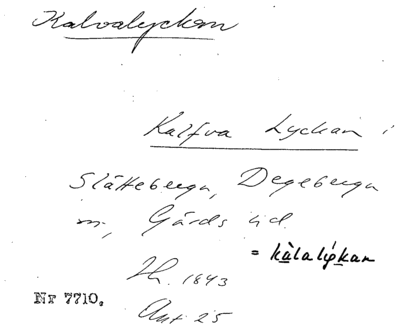 Kalvalyckan
Kalfva Lyckan i
Slätteberga, Degeberga
sn, Gärds hd.
= kàlalýkan
Lh. 1843
Nr 7710.
Akt 25